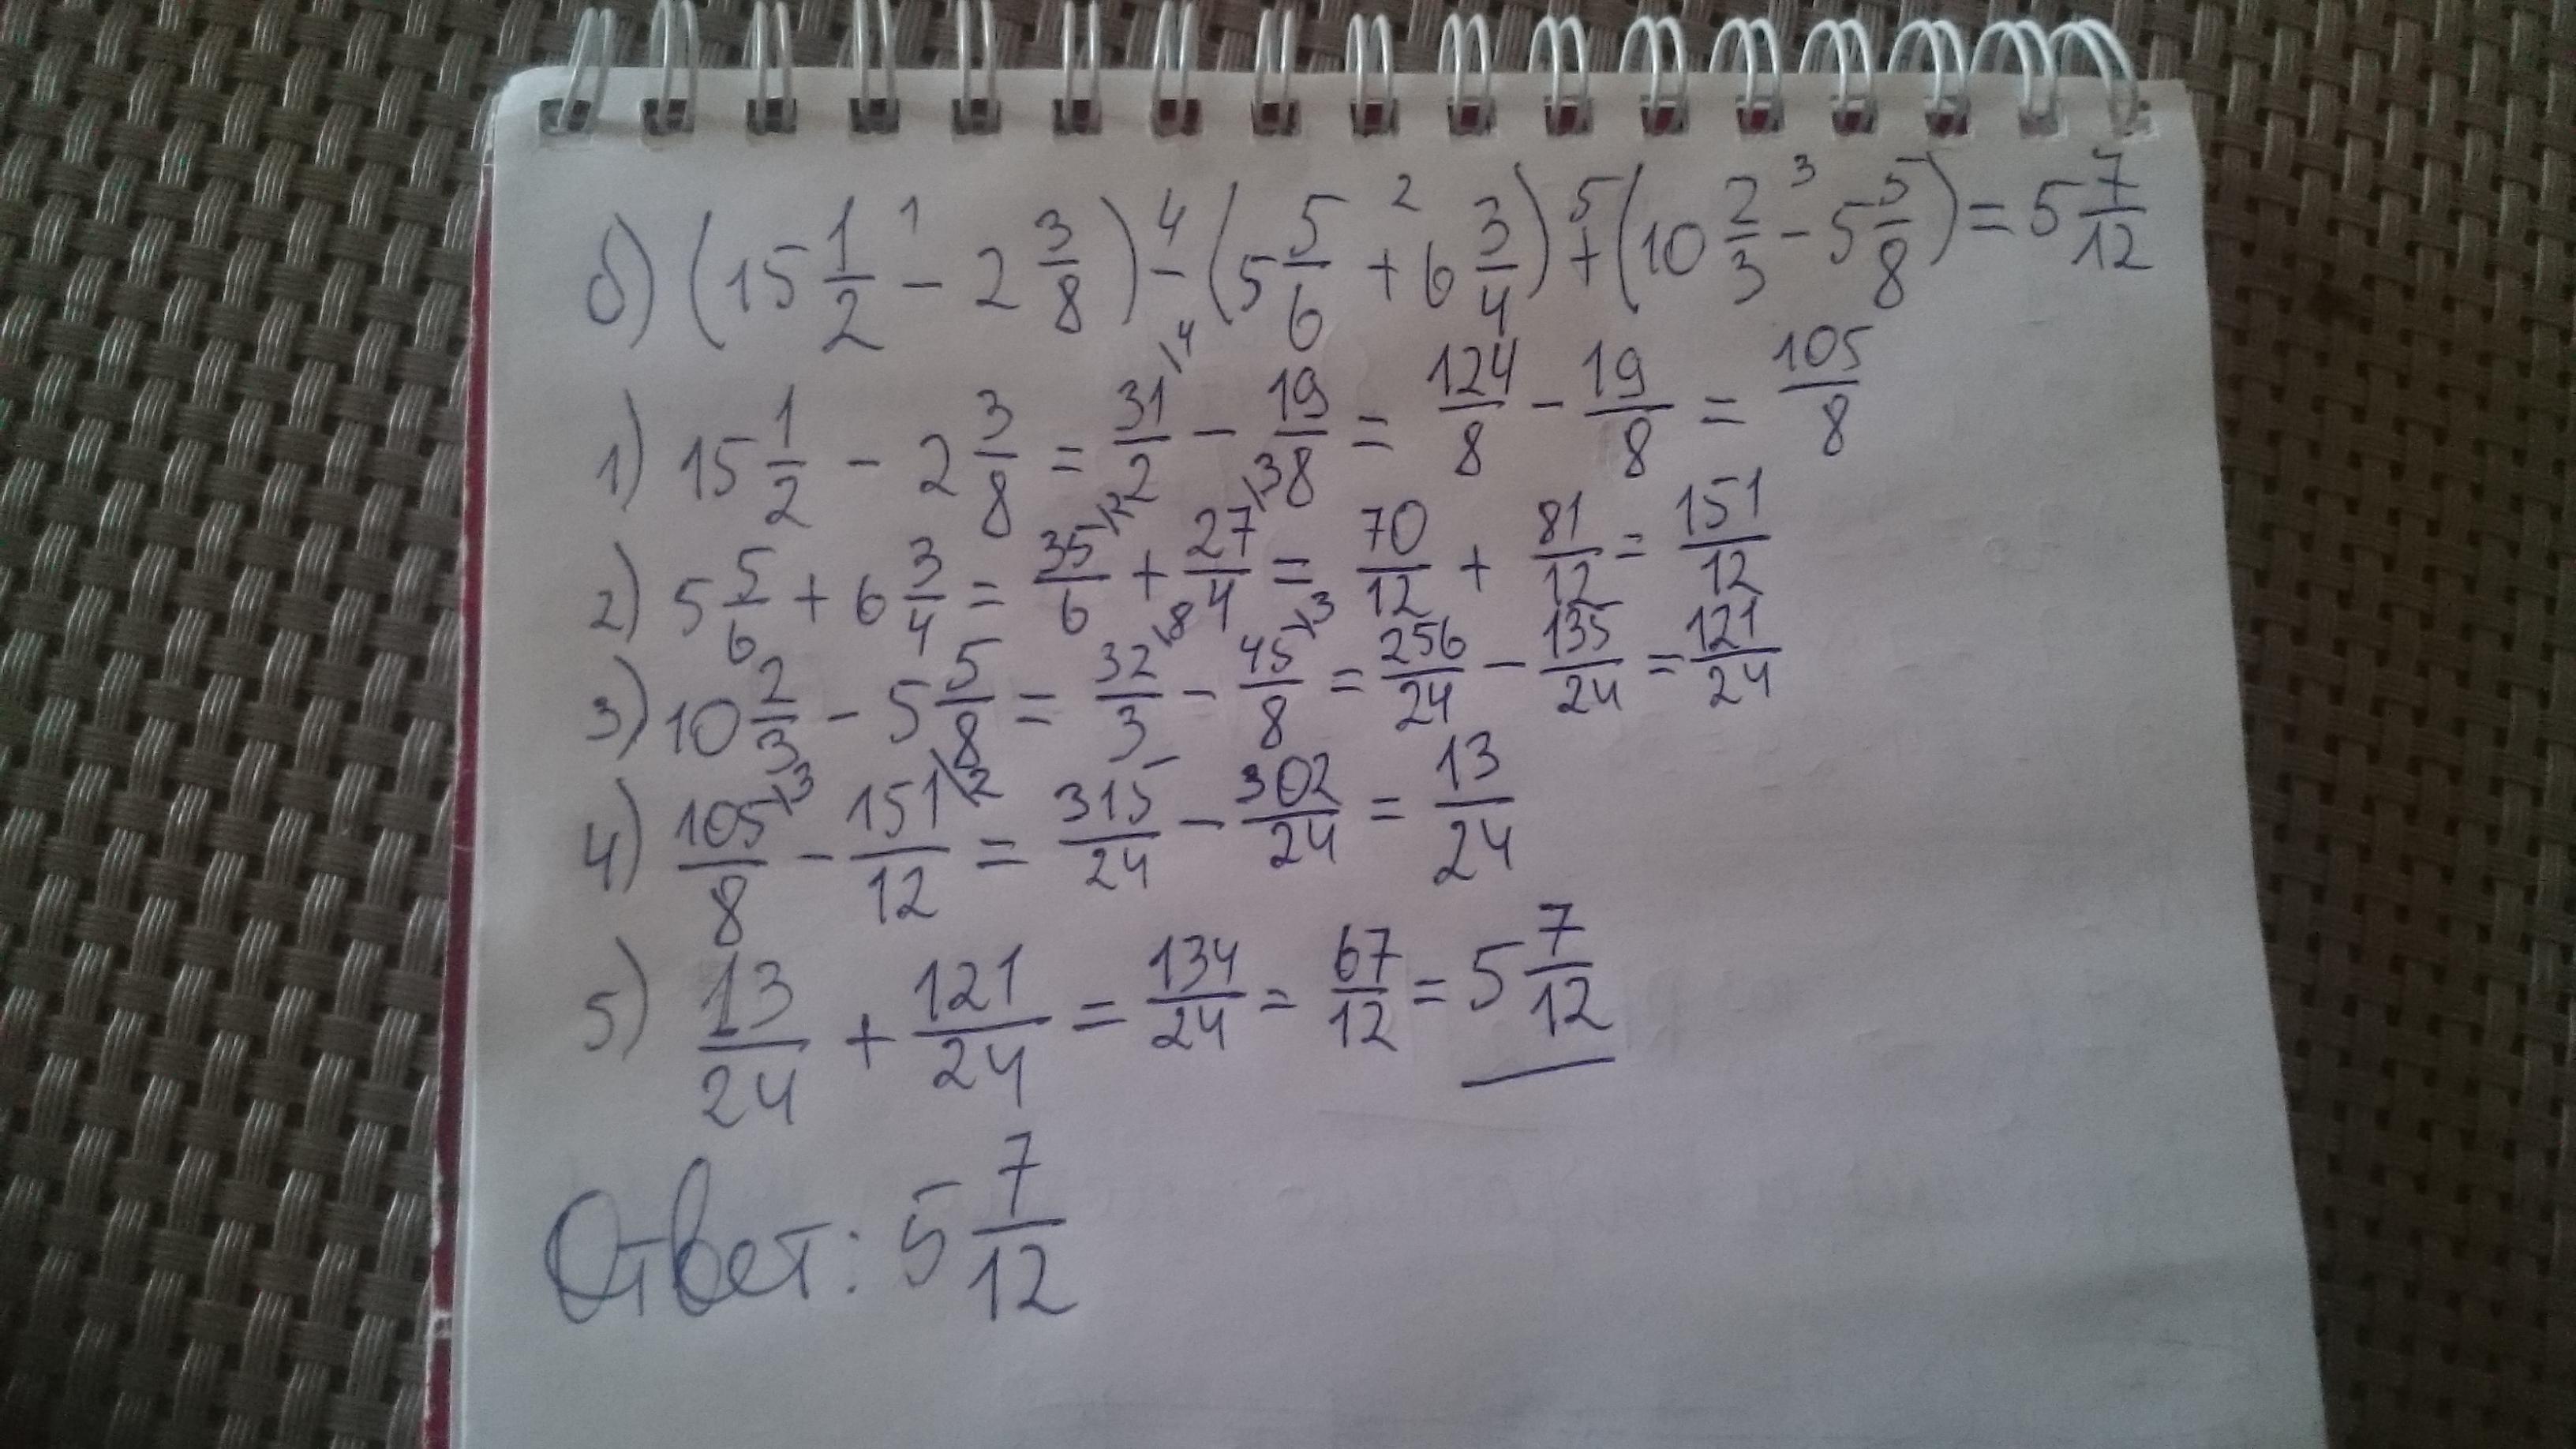 б) (15 1/2 -¹ 2 3/8) -⁴ (5 5/6 +² 6 3/4) +⁵ (10 2/3 -³ 5 5/8) = 5 7/12
1) 15 1/2 - 2 3/8 = 31\4/2 - 19/8 = 124/8 - 19/8 = 105/8
2) 5 5/6 + 6 3/4 = 35\2/6 + 27\3/4 = 70/12 + 81/12 = 151/12
3) 10 2/3 - 5 5/8 = 32\8/3 - 45\3/8 = 256/24 - 135/24 = 121/24
4) 105\3/8 - 151\2/12 = 315/24 - 302/24 = 13/24
5) 13/24 + 121/24 = 134/24 = 67/12 = 5 7/12
Ответ: 5 7/12